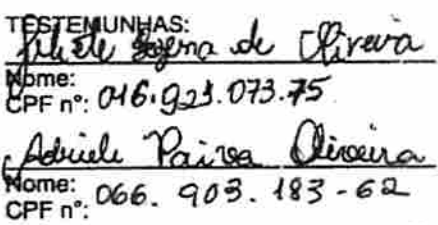 TESTEMUNHAS:
de Oliveira
Nome:
CPF nº: 016.921.073.75
Adriele Paiva Oliveira
Nome:
CPF nº: 066. 903. 183-62